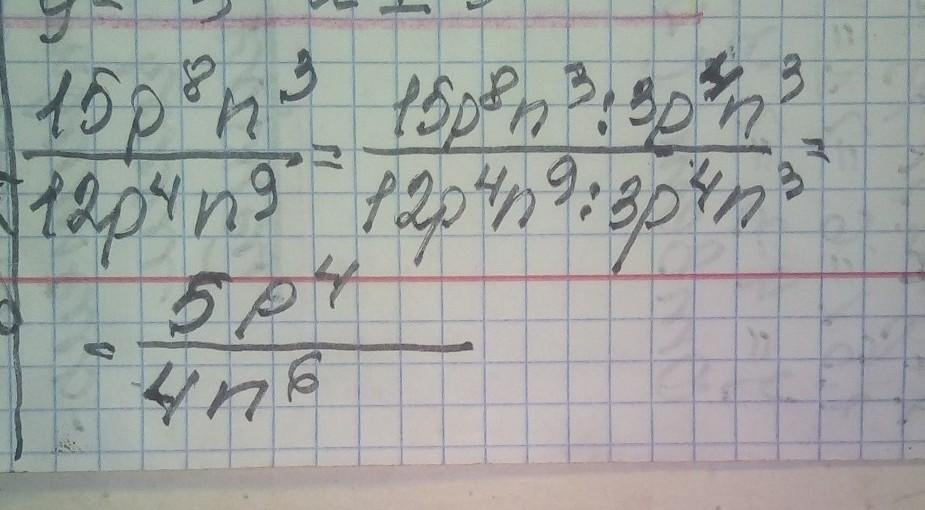 15p⁸n³/12p⁴n⁹ = 15p⁸n³:3p⁴n³/12p⁴n⁹:3p⁴n³ =
= 5p⁴/4n⁶